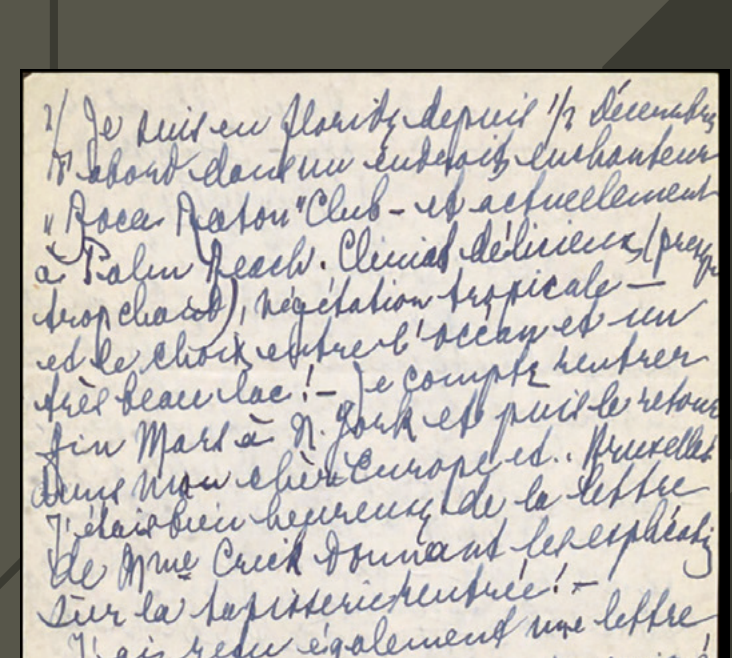 2/ Je suis en floride depuis 1/2 Décembre
D'abord dans un endroit enchanteur
"Boca Raton" Club - et actuellement
à Palm Beach. Climat délicieux, (presque
trop chaud), végétation tropicale -
et le choix entre l'océan et un
très beau lac! - Je compte rentrer
fin Mars à N. York et puis le retour
dans mon cher Europe et.. Bruxelles
J'étais bien heureux de la lettre
de Mme Crick donnant les
sur la tapisserie rentrée! -
J'ai reçu également une lettre